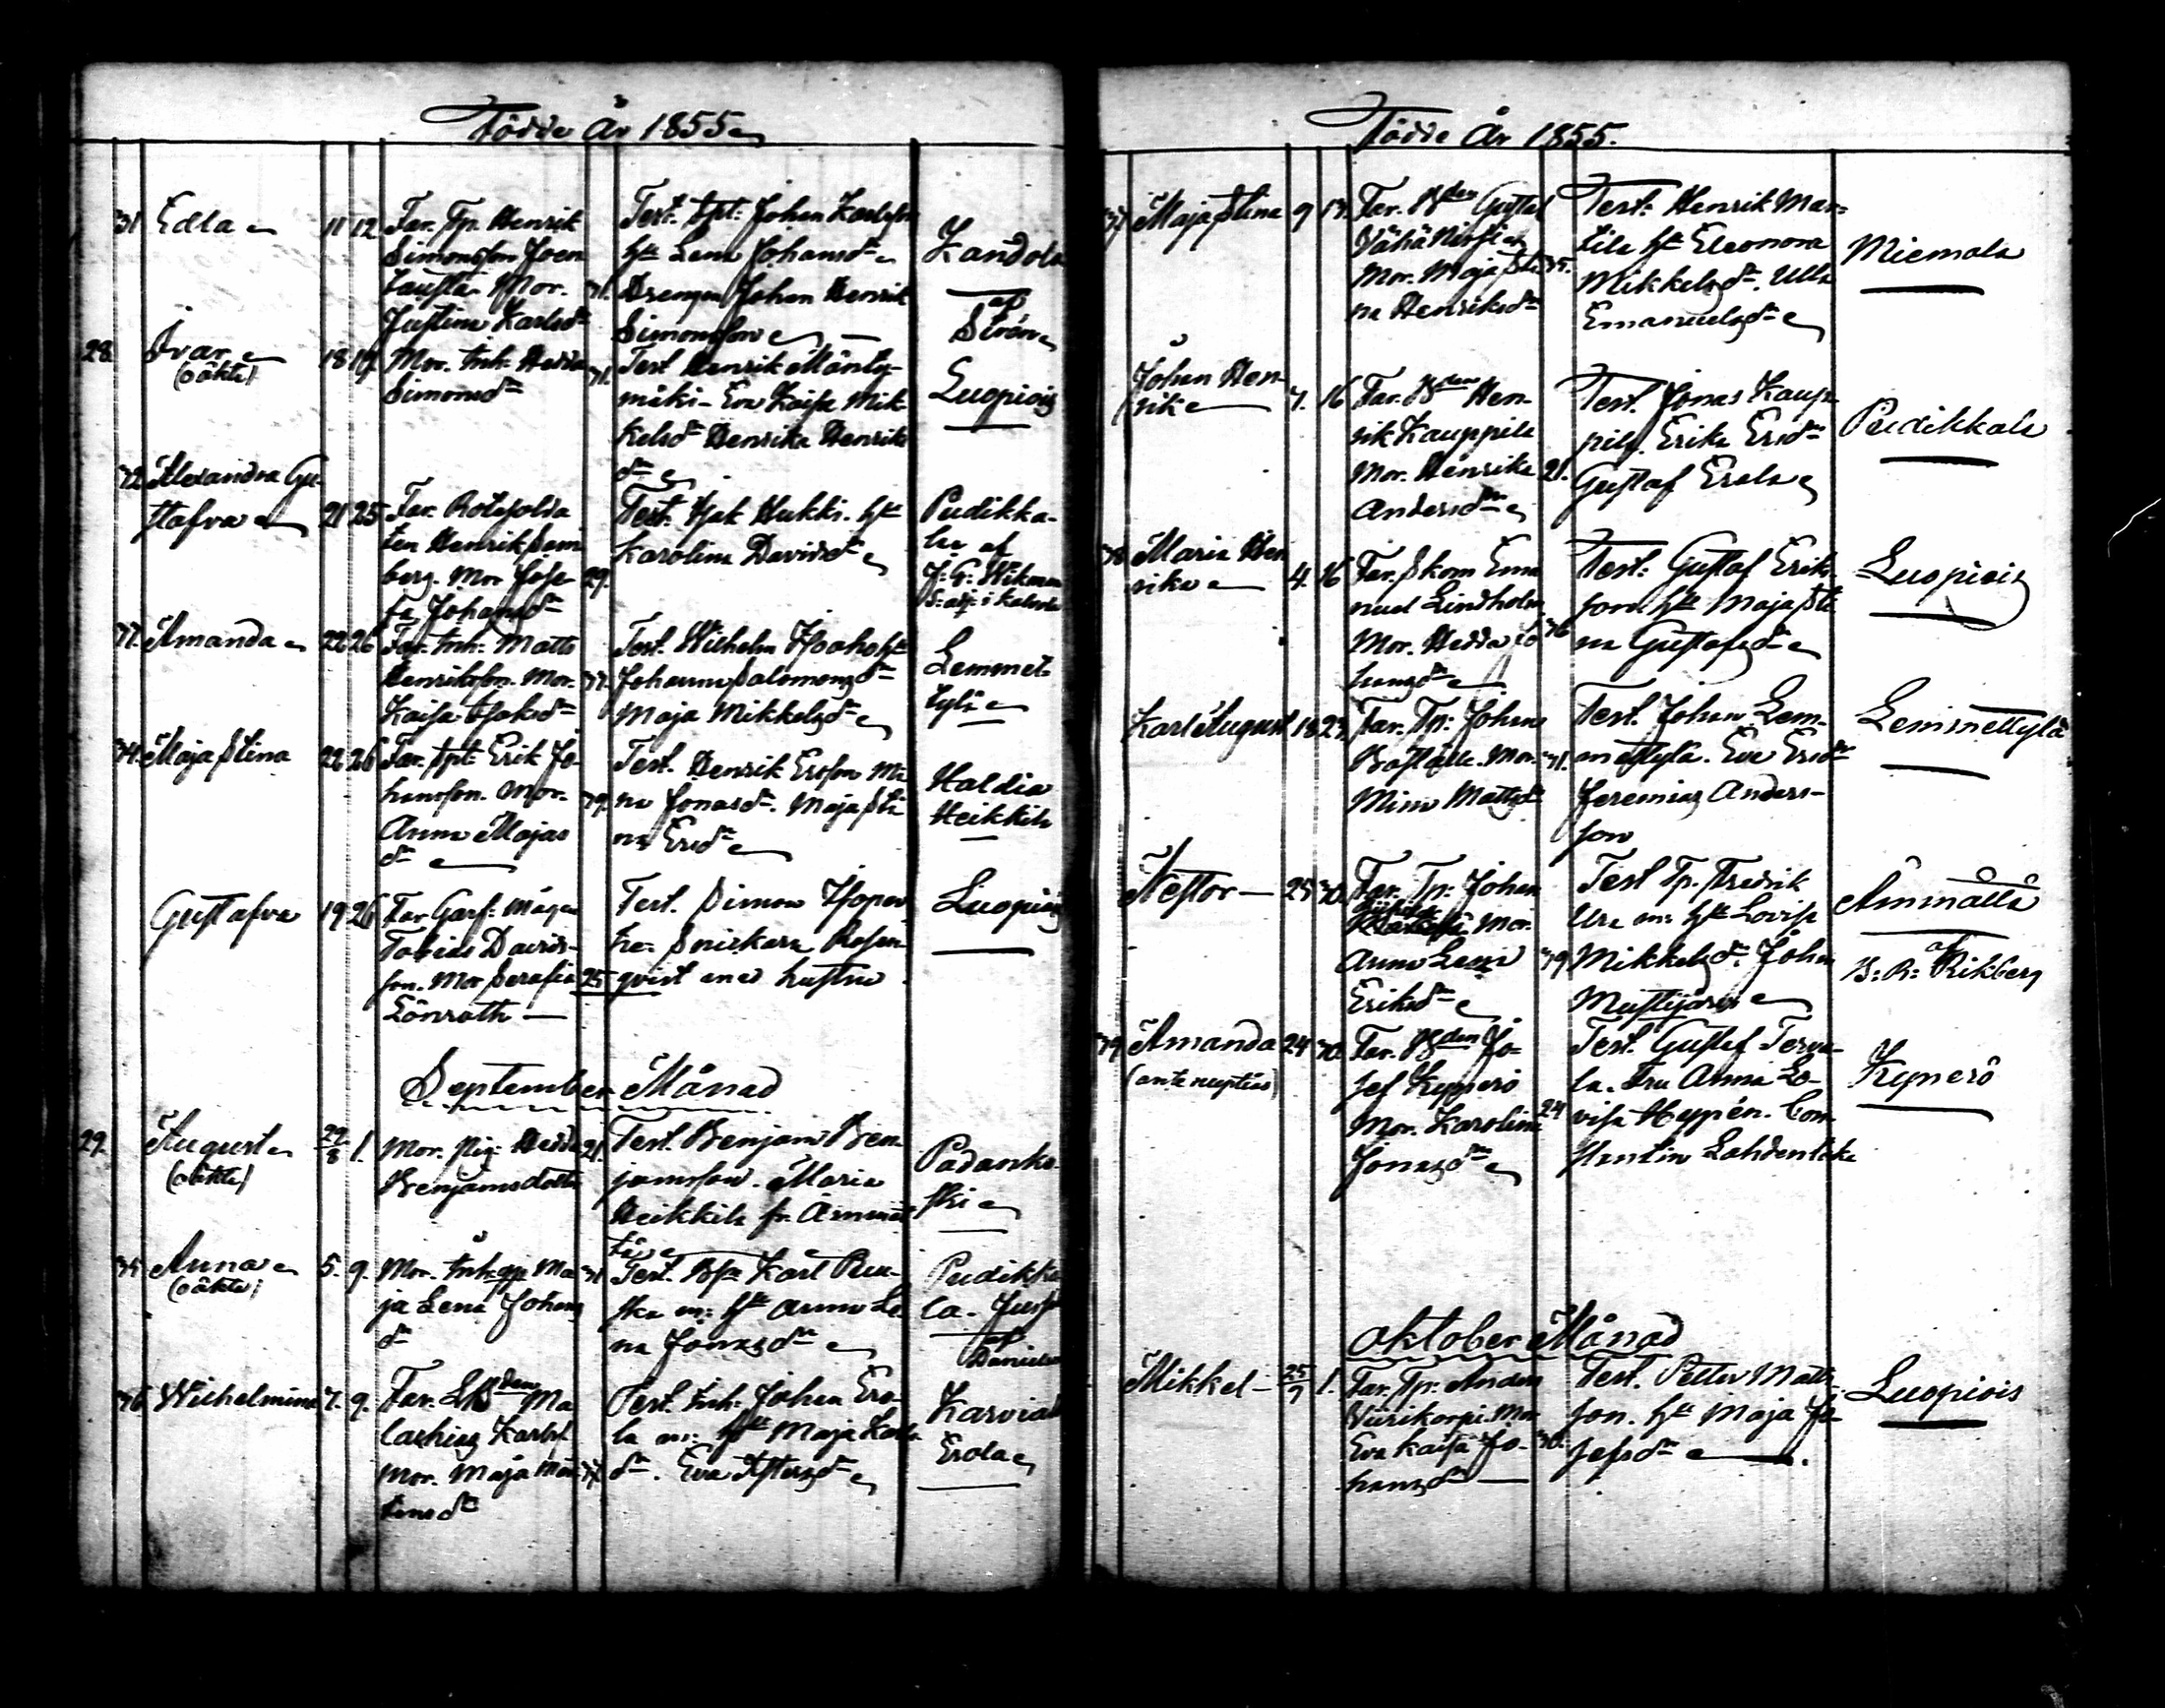 Födde År 1855
31 Edla 11 12 Far. Tp. Henrik
Simonsson Joen
Mor.
Justina Karlsdr
Test. Johan Karlsson
hu Lena Johansdr
31. Drengen Johan Henrik
Simonsson
Kandola
af
Ström
28. Ivar 18 19. Mor. Inh. Hedda
(oäkta) Simonsdr
31. Test Henrik Mänty-
mäki - Eva Kaisa Mik-
kelsdr Henrika Henriks
dr
Luopiois
32. Alexandra Gu-
stafva 21 25 Far. Rotesolda
ten Henrik
berg. Mor Jose-
fa Johansdr
29.
Test. Isak Hukki. hu
Karolina Davidsdr
Pudikka-
la af
J. G. Wikman
33. Amanda 22 26 Far. Inh. Matts
Henriksson. Mor.
Kaisa Isaksdr
37.
Test. Wilhelm Isoaho hu
Johanna Salomonsdr
Maja Mikkelsdr
Lemmet-
tylä
34. Maja Stina 22 26 Far. Erik Jo-
hansson. Mor.
Anna Majas
dr
39.
Test. Henrik Ersson Mi-
na Jonasdr. Maja Sti
na Ersdr
Haldia
Heikkilä
Gustafva 19 26 Far Garf: mågen
Tobias Davids-
son. Mor Serafia 25
Lönroth
Test. Simon
Snickaren Rosen-
qvist med hustru
Luopiois
September Månad
29. August 29/8 1. Mor. Pig: Hedda 21.
(oäkta) Benjamsdotter
Test. Benjam Ben-
jamsson. Maria
Heikkilä fr. Ämmät-
tä
Padanko-
ski
35. Anna 5. 9. Mor. Inh. Ma
(oäkta) ja Lena Johans
dr
31
Test. Karl Ruu-
ska m: hu Anna Le-
na Jonasdr
Pudikka
la. Jussi
af
Daniels
36 Wilhelmina 7. 9. Far. Ma
lachias
Mor. Maja Mar
tinsdr
Test. Inh. Johan Ero-
la m: hu Maja Karls
dr. Eva
Karviala
Erola
Födde År 1855.
37 Maja Stina 9 13. Far. Bden Gustaf
Vähä Nissi
Mor. Maja Sti 35.
na Henriksdr
Test: Henrik Mar-
tila hu Eleonora
Mikkelsdr. Ulla
Emanuelsdr
Miemola
Johan Hen-
rik 7. 16 Far. Bden Hen-
rik Kauppila
Mor. Henrika 21.
Andersdr
Test. Jonas Kaup-
pila. Erika Ersdr
Gustaf Erola
Pudikkala
38 Maria Hen
rika 4. 16 Far. Skom Ema
nuel Lindholm
Mor. Hedda Jo 36
hansdr
Test: Gustaf Eriks
son. hu Maja Sti
na Gustafsdr
Luopiois
Karl August 18 23. Far. Tp: Johan
Mor. 31.
Mina Mattsdr
Test. Johan Lem-
mettylä. Eva Ersdr
Jeremias Anders-
son
Lemmettylä
Nestor 25 30. Far. Tp: Johan
Mor.
Anna Lena 39
Eriksdr
Test Tp. Fredrik
m: hu Lovisa
Mikkelsdr. Johan
Mustijärvi
Ämmättä
af
B: R: Rikberg
39 Amanda 24 30. Far. Bden Jo-
(ante nuptias) sef Kyynerö
Mor. Karolina 24
Jonasdr
Test. Gustaf Terva-
la. Fru Anna Lo-
visa Heypén. Con-
stantin Lahdentaka
Kynerö
Oktober Månad
Mikkel 25/9 1. Far. Tp: Anders
Viirikorpi. Mor
Eva Kaisa Jo- 30.
hansdr
Test. Petter Matts
son. hu Maja Jo-
sefsdr
Luopiois